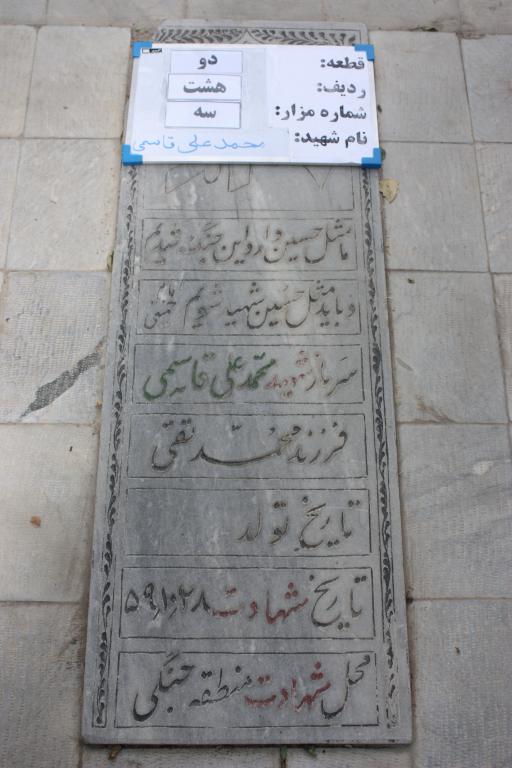 قطعه: دو
ردیف: هشت
شماره مزار: سه
نام شهید: محمد علی قاسمی
ما مثل حسین وارد این جنگ شدیم
و باید مثل حسین شهید شویم
سرباز شهید محمد علی قاسمی
فرزند محمد تقی
تاریخ تولد
تاریخ شهادت ۵۹٫۱٫۲۸
محل شهادت منطقه جنگی